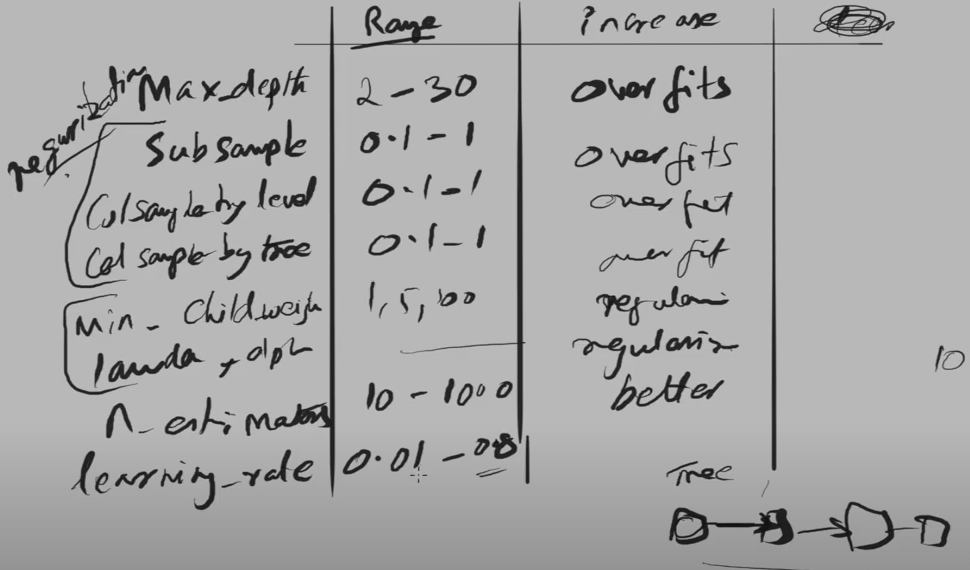 Range increase
Max_depth 2 - 30 over fits
regurization
Sub sample 0.1 - 1 over fits
Col sample by level 0.1 - 1 over fit
Col sample by tree 0.1 - 1 over fit
Min_ Child_weigh 1, 5, 100 regulari
lamda, alph regularix
10
n_estimators 10 - 1000 better
learning_rate 0.01 -
Tree